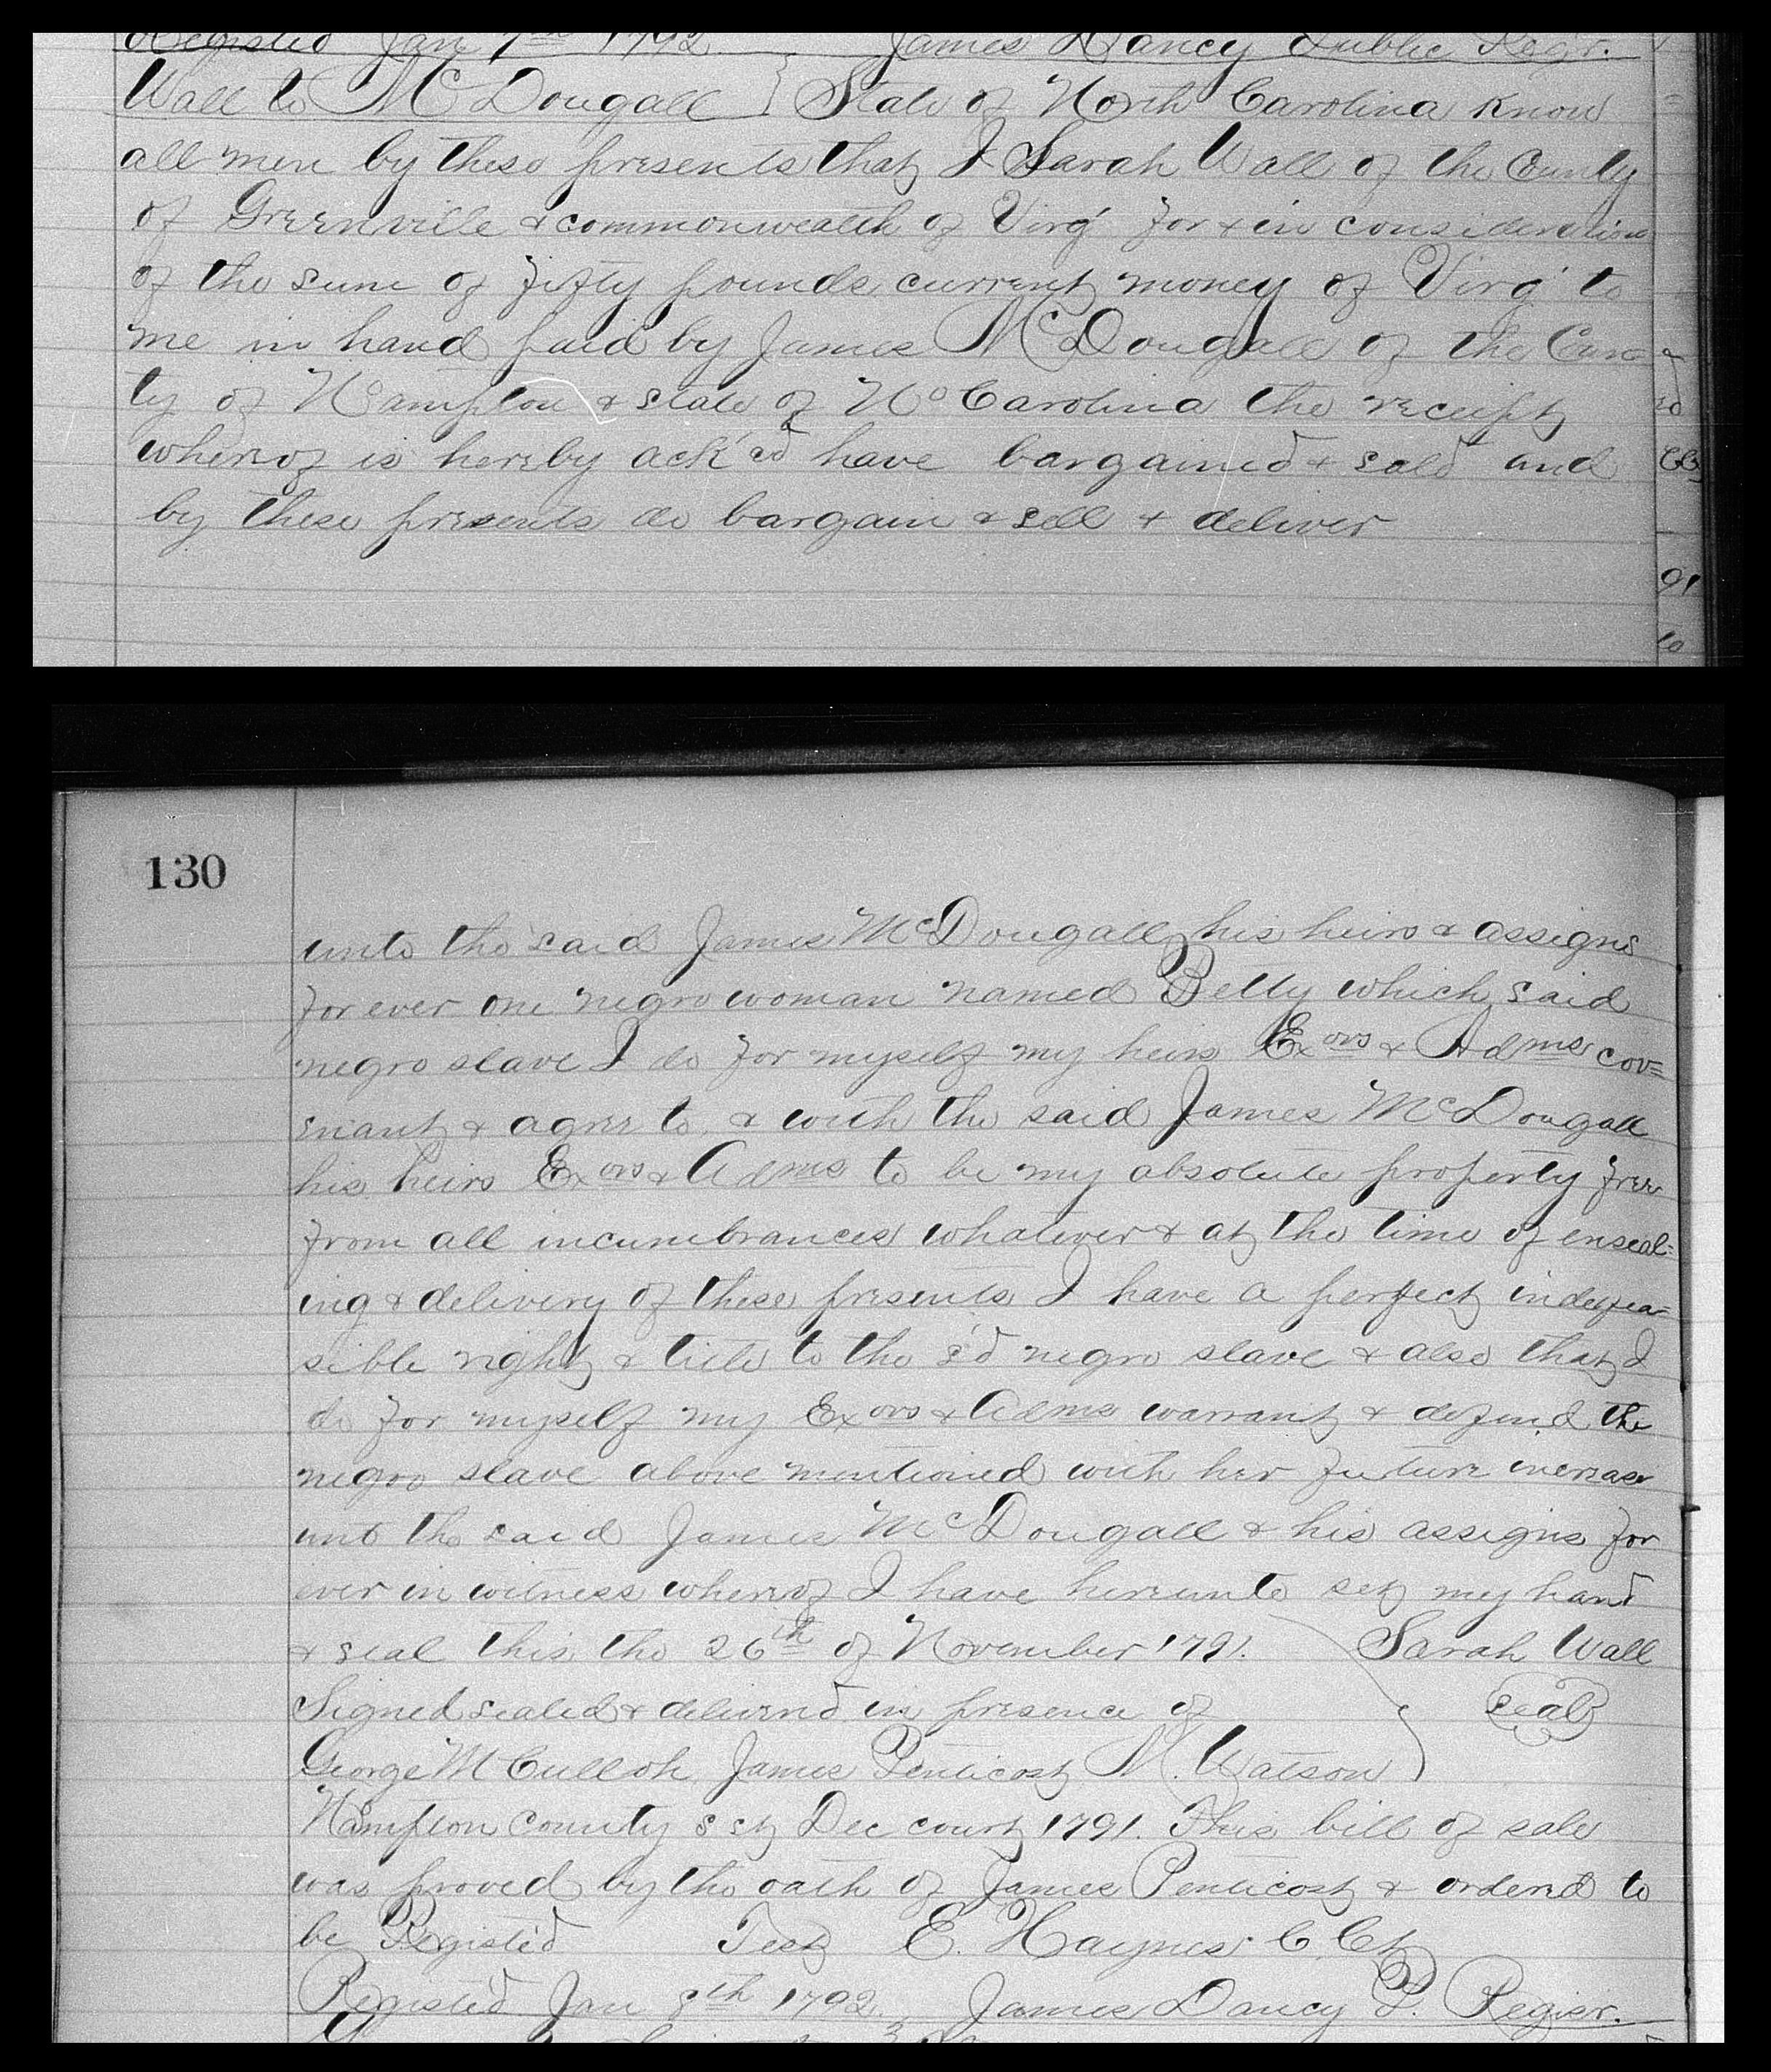 Registed Jan 7th 1792 James Dancy Public Regr.
Wall to McDougall } State of North Carolina Know
all men by these presents that I Sarah Wall of the County
of Greenville & commonwealth of Virg' for & in consideration
of the sum of fifty pounds current money of Virg' to
me in hand paid by James McDougall of the Coun=
ty of Hampton & state of No Carolina the receipt
whereof is hereby ack'ed have bargained & sold and
by these presents do bargain & sell & deliver
130
unto the said James McDougall his heirs & assigns
for ever one negro woman named Betty which said
negro slave I do for myself my heirs Exors & Adms cov=
enant & agree to & with the said James McDougall
his heirs Exors & Adms to be my absolute property free
from all incumbrances whatever & at the time of enseal=
ing & delivery of these presents I have a perfect indefea=
sible right & title to the s'd negro slave & also that I
do for myself my Exors & Adms warrant & defend the
negro slave above mentioned with her future increase
unto the said James McDougall & his assigns for
ever in witness whereof I have hereunto set my hand
& seal this the 26th of November 1791. Sarah Wall
Signed sealed & deliverd in presence of seal
George McCulloh James Penticost M. Watson
Hampton County sct Dec court 1791. This bill of sale
was proved by the oath of James Penticost & ordered to
be Registed Test E. Haynes C. Ct
Registed Jan 8th 1792. James Dancy P. Regisr.